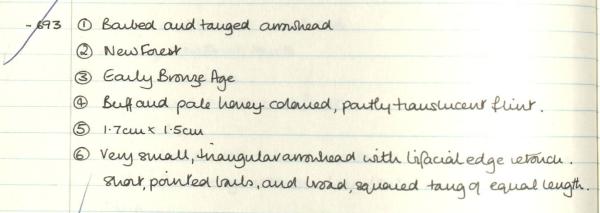 - 693 ① Barbed and tanged arrowhead
② New Forest
③ Early Bronze Age
④ Buff and pale honey coloured, partly translucent flint.
⑤ 1.7cm x 1.5cm
⑥ Very small, triangular arrowhead with bifacial edge retouch.
Short, pointed barbs, and broad, squared tang of equal length.